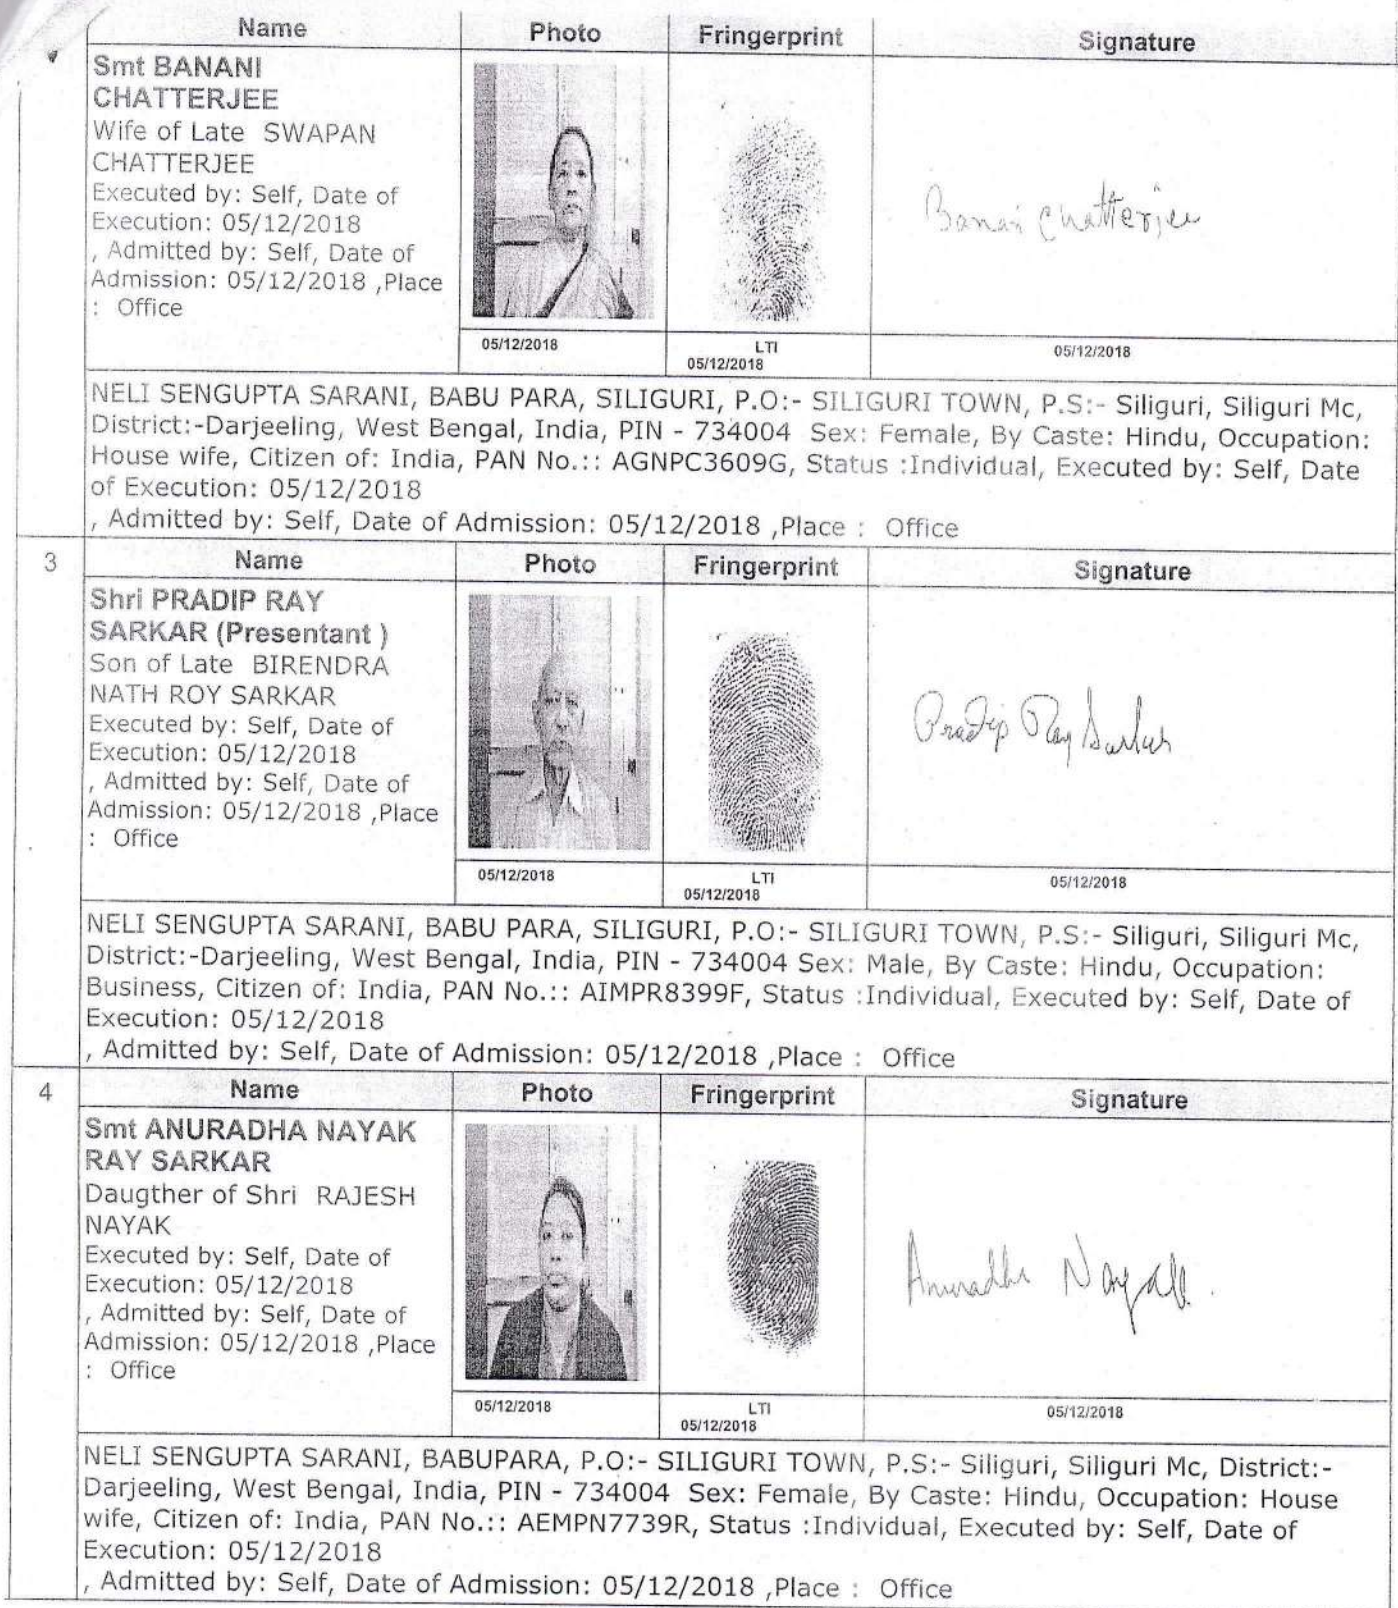 Name Photo Fringerprint Signature
Smt BANANI
CHATTERJEE
Wife of Late SWAPAN
CHATTERJEE
Executed by: Self, Date of
Execution: 05/12/2018
, Admitted by: Self, Date of
Admission: 05/12/2018 ,Place
: Office
Banani Chatterjee
05/12/2018 LTI 05/12/2018
05/12/2018
NELI SENGUPTA SARANI, BABU PARA, SILIGURI, P.O:- SILIGURI TOWN, P.S:- Siliguri, Siliguri Mc,
District:-Darjeeling, West Bengal, India, PIN - 734004 Sex: Female, By Caste: Hindu, Occupation:
House wife, Citizen of: India, PAN No.:: AGNPC3609G, Status :Individual, Executed by: Self, Date
of Execution: 05/12/2018
, Admitted by: Self, Date of Admission: 05/12/2018 ,Place : Office
3 Name Photo Fringerprint Signature
Shri PRADIP RAY
SARKAR (Presentant )
Son of Late BIRENDRA
NATH ROY SARKAR
Executed by: Self, Date of
Execution: 05/12/2018
, Admitted by: Self, Date of
Admission: 05/12/2018 ,Place
: Office
Pradip Ray Sarkar
05/12/2018 LTI 05/12/2018
05/12/2018
NELI SENGUPTA SARANI, BABU PARA, SILIGURI, P.O:- SILIGURI TOWN, P.S:- Siliguri, Siliguri Mc,
District:-Darjeeling, West Bengal, India, PIN - 734004 Sex: Male, By Caste: Hindu, Occupation:
Business, Citizen of: India, PAN No.:: AIMPR8399F, Status :Individual, Executed by: Self, Date of
Execution: 05/12/2018
, Admitted by: Self, Date of Admission: 05/12/2018 ,Place : Office
4 Name Photo Fringerprint Signature
Smt ANURADHA NAYAK
RAY SARKAR
Daugther of Shri RAJESH
NAYAK
Executed by: Self, Date of
Execution: 05/12/2018
, Admitted by: Self, Date of
Admission: 05/12/2018 ,Place
: Office
Anuradha Nayak.
05/12/2018 LTI 05/12/2018
05/12/2018
NELI SENGUPTA SARANI, BABUPARA, P.O:- SILIGURI TOWN, P.S:- Siliguri, Siliguri Mc, District:-
Darjeeling, West Bengal, India, PIN - 734004 Sex: Female, By Caste: Hindu, Occupation: House
wife, Citizen of: India, PAN No.:: AEMPN7739R, Status :Individual, Executed by: Self, Date of
Execution: 05/12/2018
, Admitted by: Self, Date of Admission: 05/12/2018 ,Place : Office